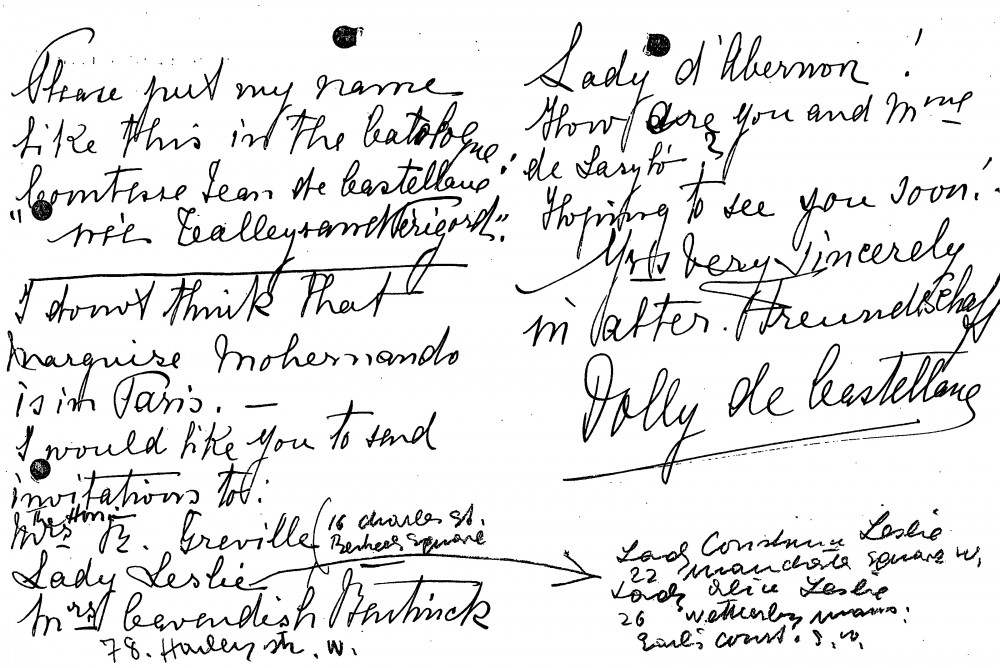 Please put my name
like this in the Catalogue:
"Comtesse Jean de Castellane
née Talleyrand Périgord."
I donot think that
Marquise Mohernando
is in Paris. —
I would like you to send
invitations to:
The Hon
Mrs R. Greville (16 Charles St.
Berkeley Square
Lady Leslie
Mrs Cavendish Bentinck
78. Harley str. W.
Lady d'Abernon!
How are you and Mme
de László?
Hoping to see you soon!
Yrs very sincerely
in alter. Freundschaft
Dolly de Castellane
Lady Constance Leslie
22 Manchester Square W.
Lady Alice Leslie
26 Wetherby Mans:
Earl's Court. S.W.